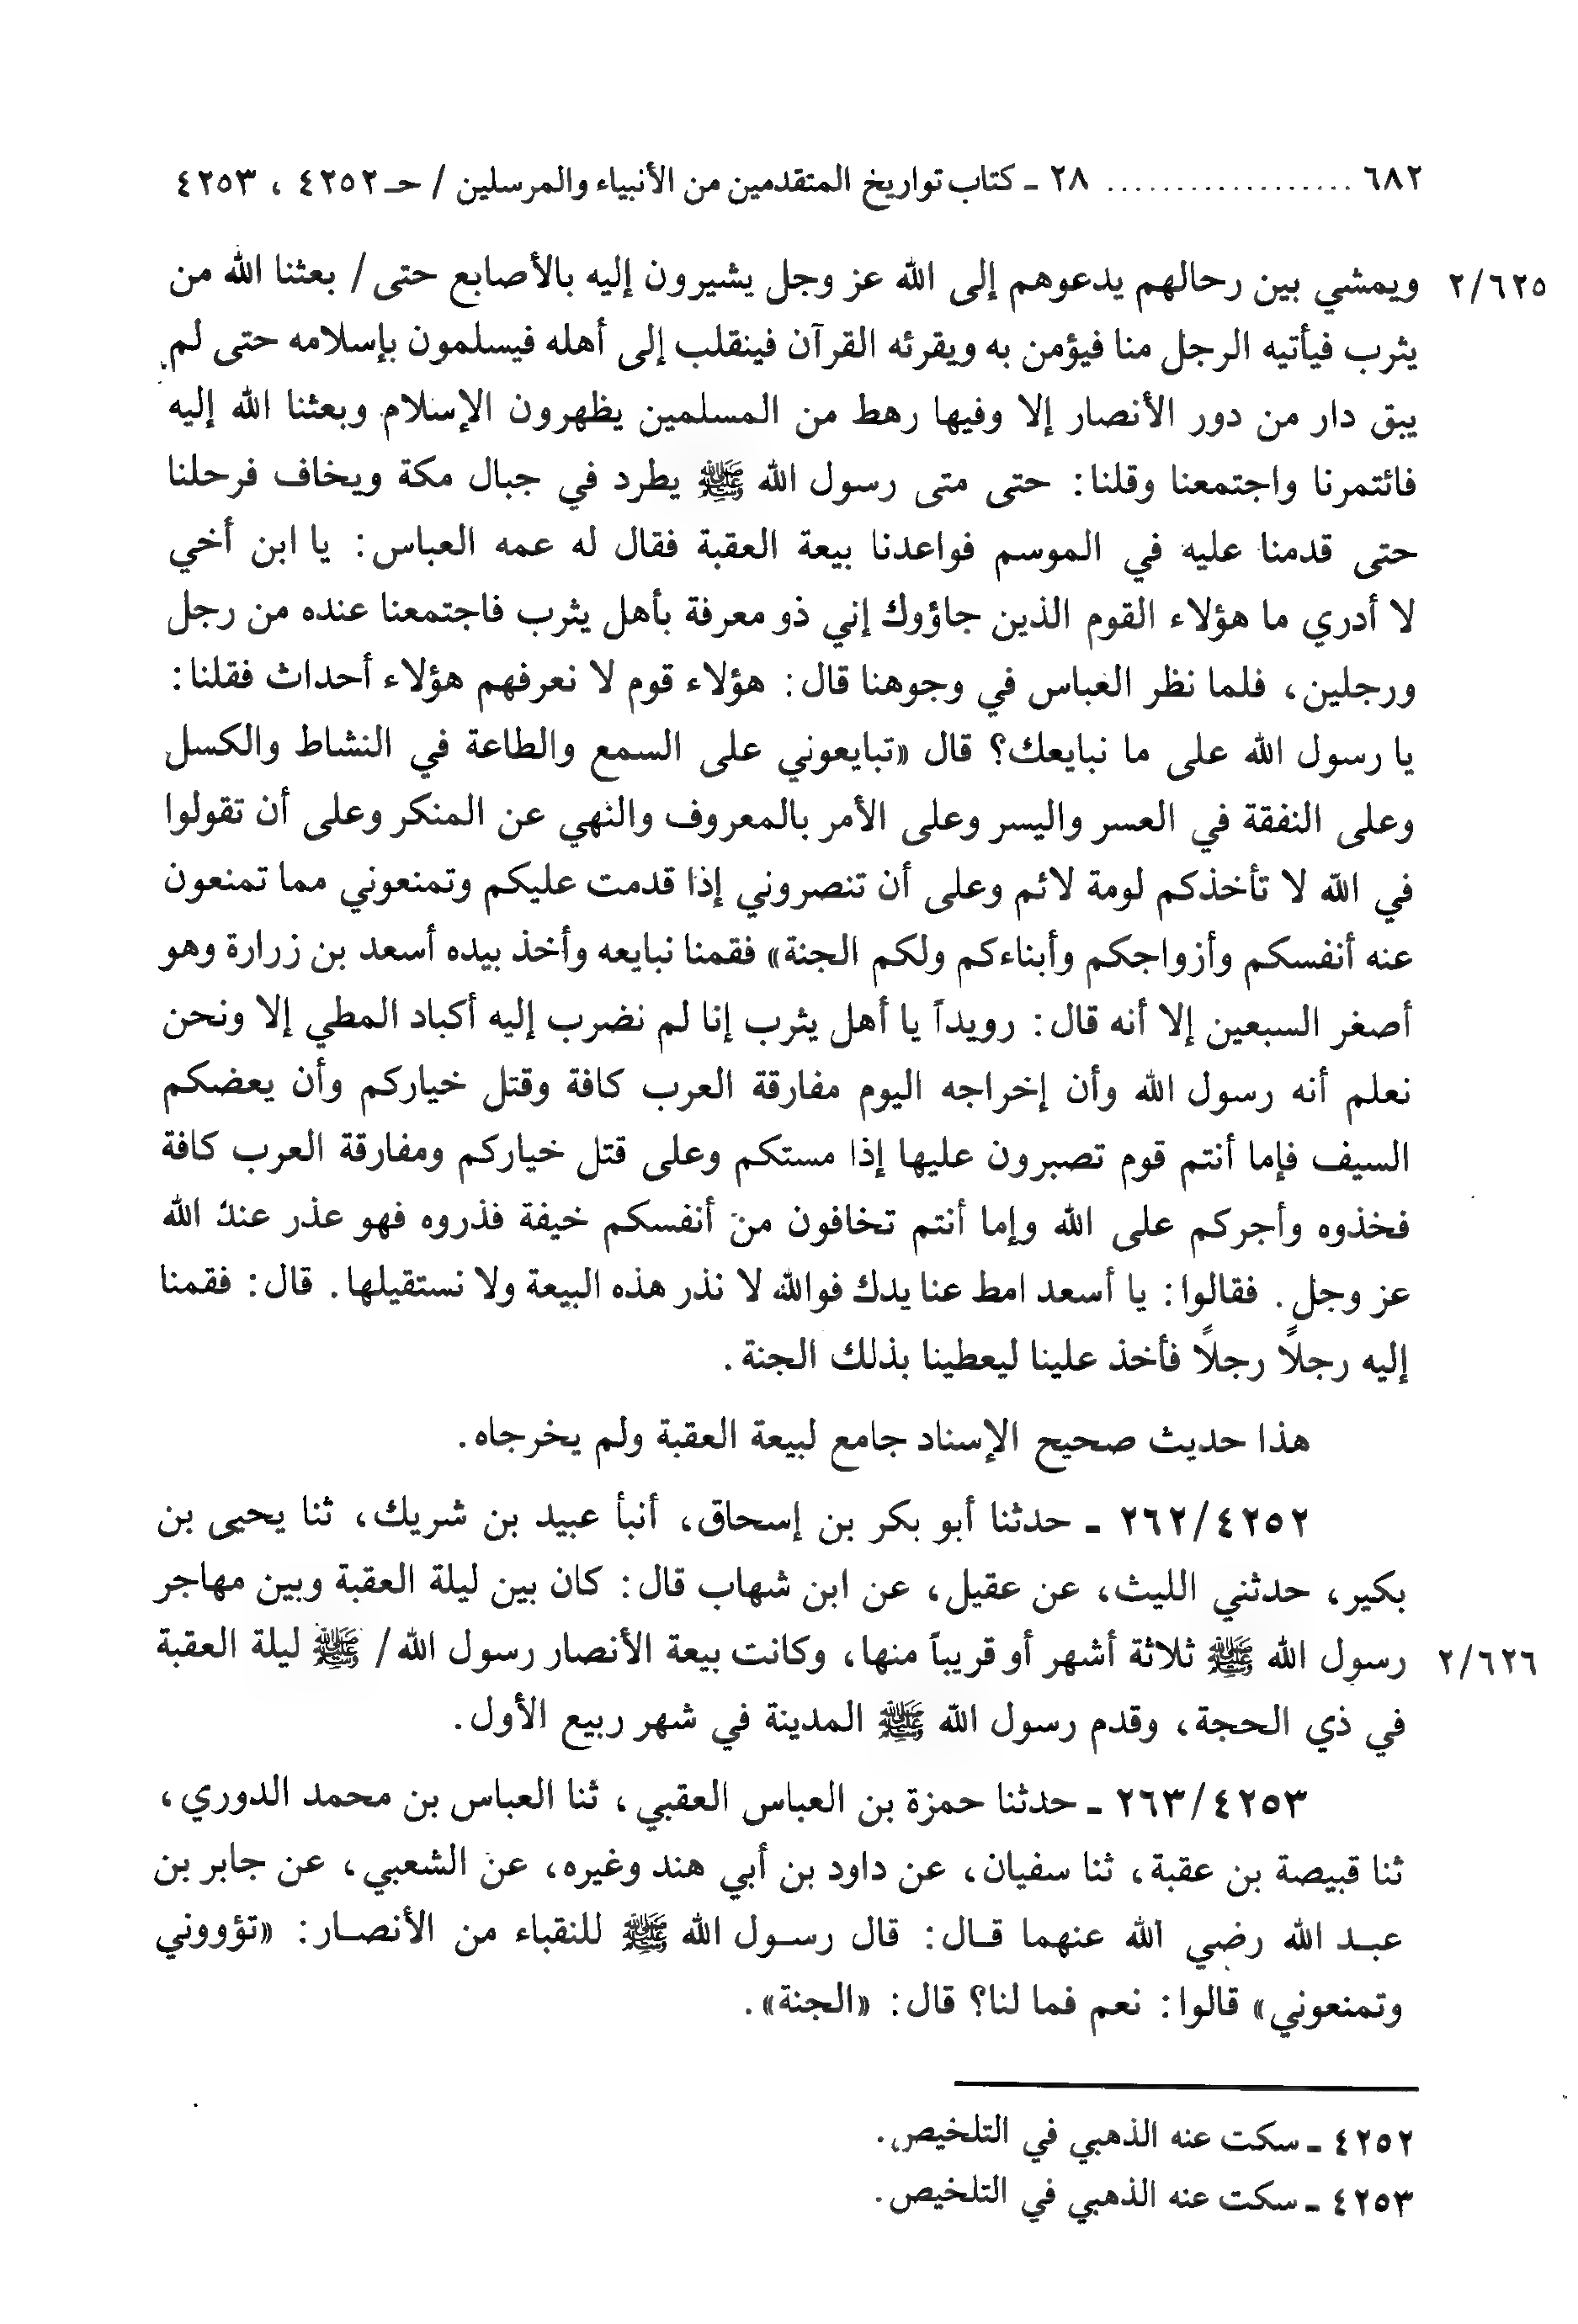 ٦٨٢ .................. ٢٨ ـ كتاب تواريخ المتقدمين من الأنبياء والمرسلين / حـ ٤٢٥٢ ، ٤٢٥٣
٢/٦٢٥ ويمشي بين رحالهم يدعوهم إلى الله عز وجل يشيرون إليه بالأصابع حتى / بعثنا الله من
يثرب فيأتيه الرجل منا فيؤمن به ويقرئه القرآن فينقلب إلى أهله فيسلمون بإسلامه حتى لم
يبق دار من دور الأنصار إلا وفيها رهط من المسلمين يظهرون الإسلام وبعثنا الله إليه
فائتمرنا واجتمعنا وقلنا: حتى متى رسول الله ﷺ يطرد في جبال مكة ويخاف فرحلنا
حتى قدمنا عليه في الموسم فواعدنا بيعة العقبة فقال له عمه العباس: يا ابن أخي
لا أدري ما هؤلاء القوم الذين جاؤوك إني ذو معرفة بأهل يثرب فاجتمعنا عنده من رجل
ورجلين، فلما نظر العباس في وجوهنا قال: هؤلاء قوم لا نعرفهم هؤلاء أحداث فقلنا:
يا رسول الله على ما نبايعك؟ قال «تبايعوني على السمع والطاعة في النشاط والكسل
وعلى النفقة في العسر واليسر وعلى الأمر بالمعروف والنهي عن المنكر وعلى أن تقولوا
في الله لا تأخذكم لومة لائم وعلى أن تنصروني إذا قدمت عليكم وتمنعوني مما تمنعون
عنه أنفسكم وأزواجكم وأبناءكم ولكم الجنة» فقمنا نبايعه وأخذ بيده أسعد بن زرارة وهو
أصغر السبعين إلا أنه قال: رويداً يا أهل يثرب إنا لم نضرب إليه أكباد المطي إلا ونحن
نعلم أنه رسول الله وأن إخراجه اليوم مفارقة العرب كافة وقتل خياركم وأن يعضكم
السيف فإما أنتم قوم تصبرون عليها إذا مستكم وعلى قتل خياركم ومفارقة العرب كافة
فخذوه وأجركم على الله وإما أنتم تخافون من أنفسكم خيفة فذروه فهو عذر عند الله
عز وجل. فقالوا: يا أسعد امط عنا يدك فوالله لا نذر هذه البيعة ولا نستقيلها. قال: فقمنا
إليه رجلاً رجلاً فأخذ علينا ليعطينا بذلك الجنة.
هذا حديث صحيح الإسناد جامع لبيعة العقبة ولم يخرجاه.
٢٦٢/٤٢٥٢ ـ حدثنا أبو بكر بن إسحاق، أنبأ عبيد بن شريك، ثنا يحيى بن
بكير، حدثني الليث، عن عقيل، عن ابن شهاب قال: كان بين ليلة العقبة وبين مهاجر
٢/٦٢٦ رسول الله ﷺ ثلاثة أشهر أو قريباً منها، وكانت بيعة الأنصار رسول الله/ ﷺ ليلة العقبة
في ذي الحجة، وقدم رسول الله ﷺ المدينة في شهر ربيع الأول.
٢٦٣/٤٢٥٣ ـ حدثنا حمزة بن العباس العقبي، ثنا العباس بن محمد الدوري،
ثنا قبيصة بن عقبة، ثنا سفيان، عن داود بن أبي هند وغيره، عن الشعبي، عن جابر بن
عبـد الله رضي الله عنهما قـال: قال رسـول الله ﷺ للنقباء من الأنصـار: «تؤووني
وتمنعوني» قالوا: نعم فما لنا؟ قال: «الجنة».
٤٢٥٢ ـ سكت عنه الذهبي في التلخيص.
٤٢٥٣ ـ سكت عنه الذهبي في التلخيص.